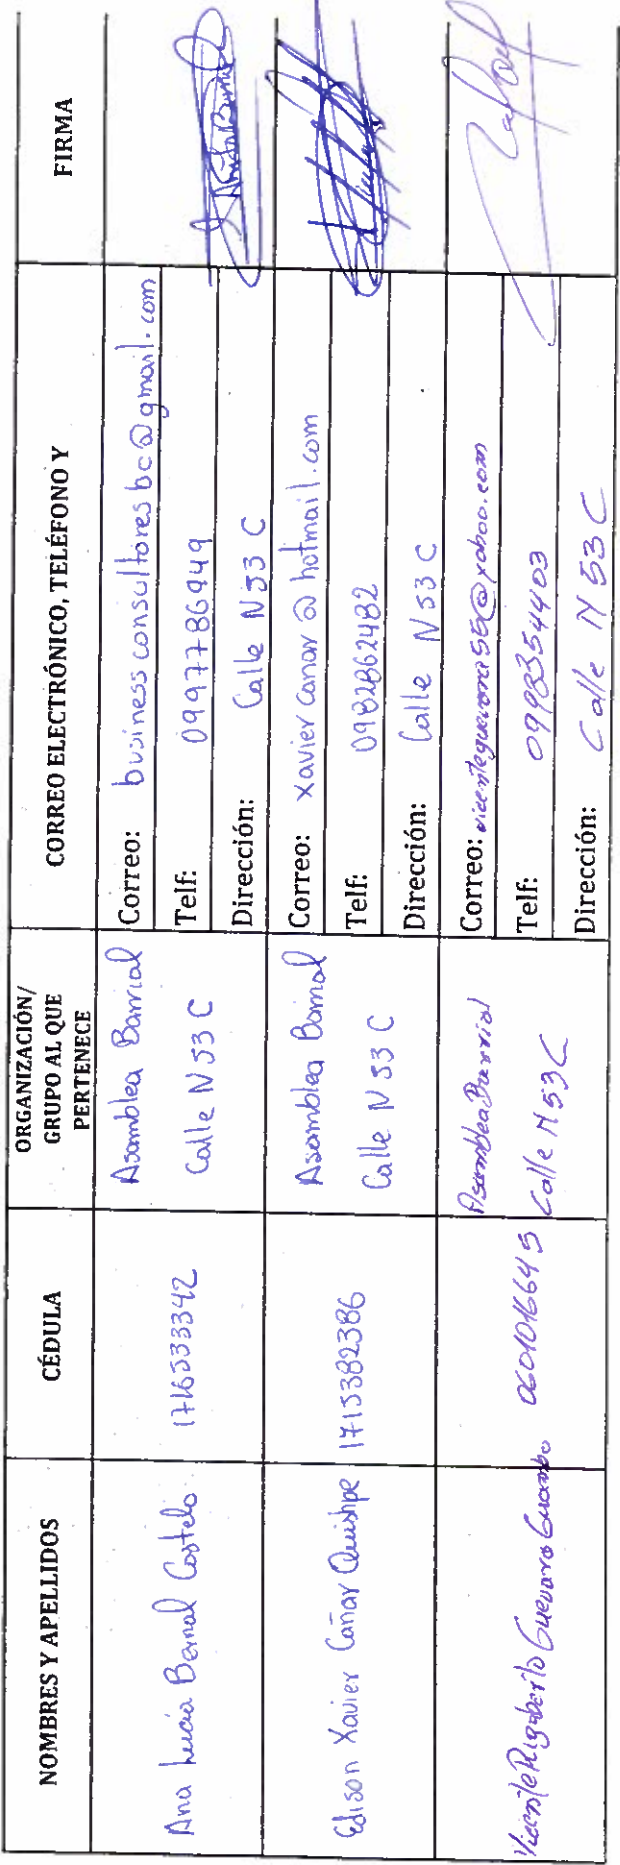 NOMBRES Y APELLIDOS
CÉDULA
ORGANIZACIÓN/
GRUPO AL QUE
PERTENECE
CORREO ELECTRÓNICO, TELÉFONO Y
FIRMA
Ana Lucía Bernal Costelo
1716533342
Asamblea Barrial
Calle N53 C
Correo: business consultores bc@gmail.com
Telf: 0997786949
Dirección: Calle N53 C
Edison Xavier Cañar Quishpe
1715382386
Asamblea Barrial
Calle N53 C
Correo: xavier canar@hotmail.com
Telf: 0982862482
Dirección: Calle N53 C
Vicente Rigoberto Guevara Guambo
0601016645
Asamblea Barrial
Calle N53C
Correo: vicenteguevara56@yahoo.com
Telf: 0998354403
Dirección: Calle N 53 C